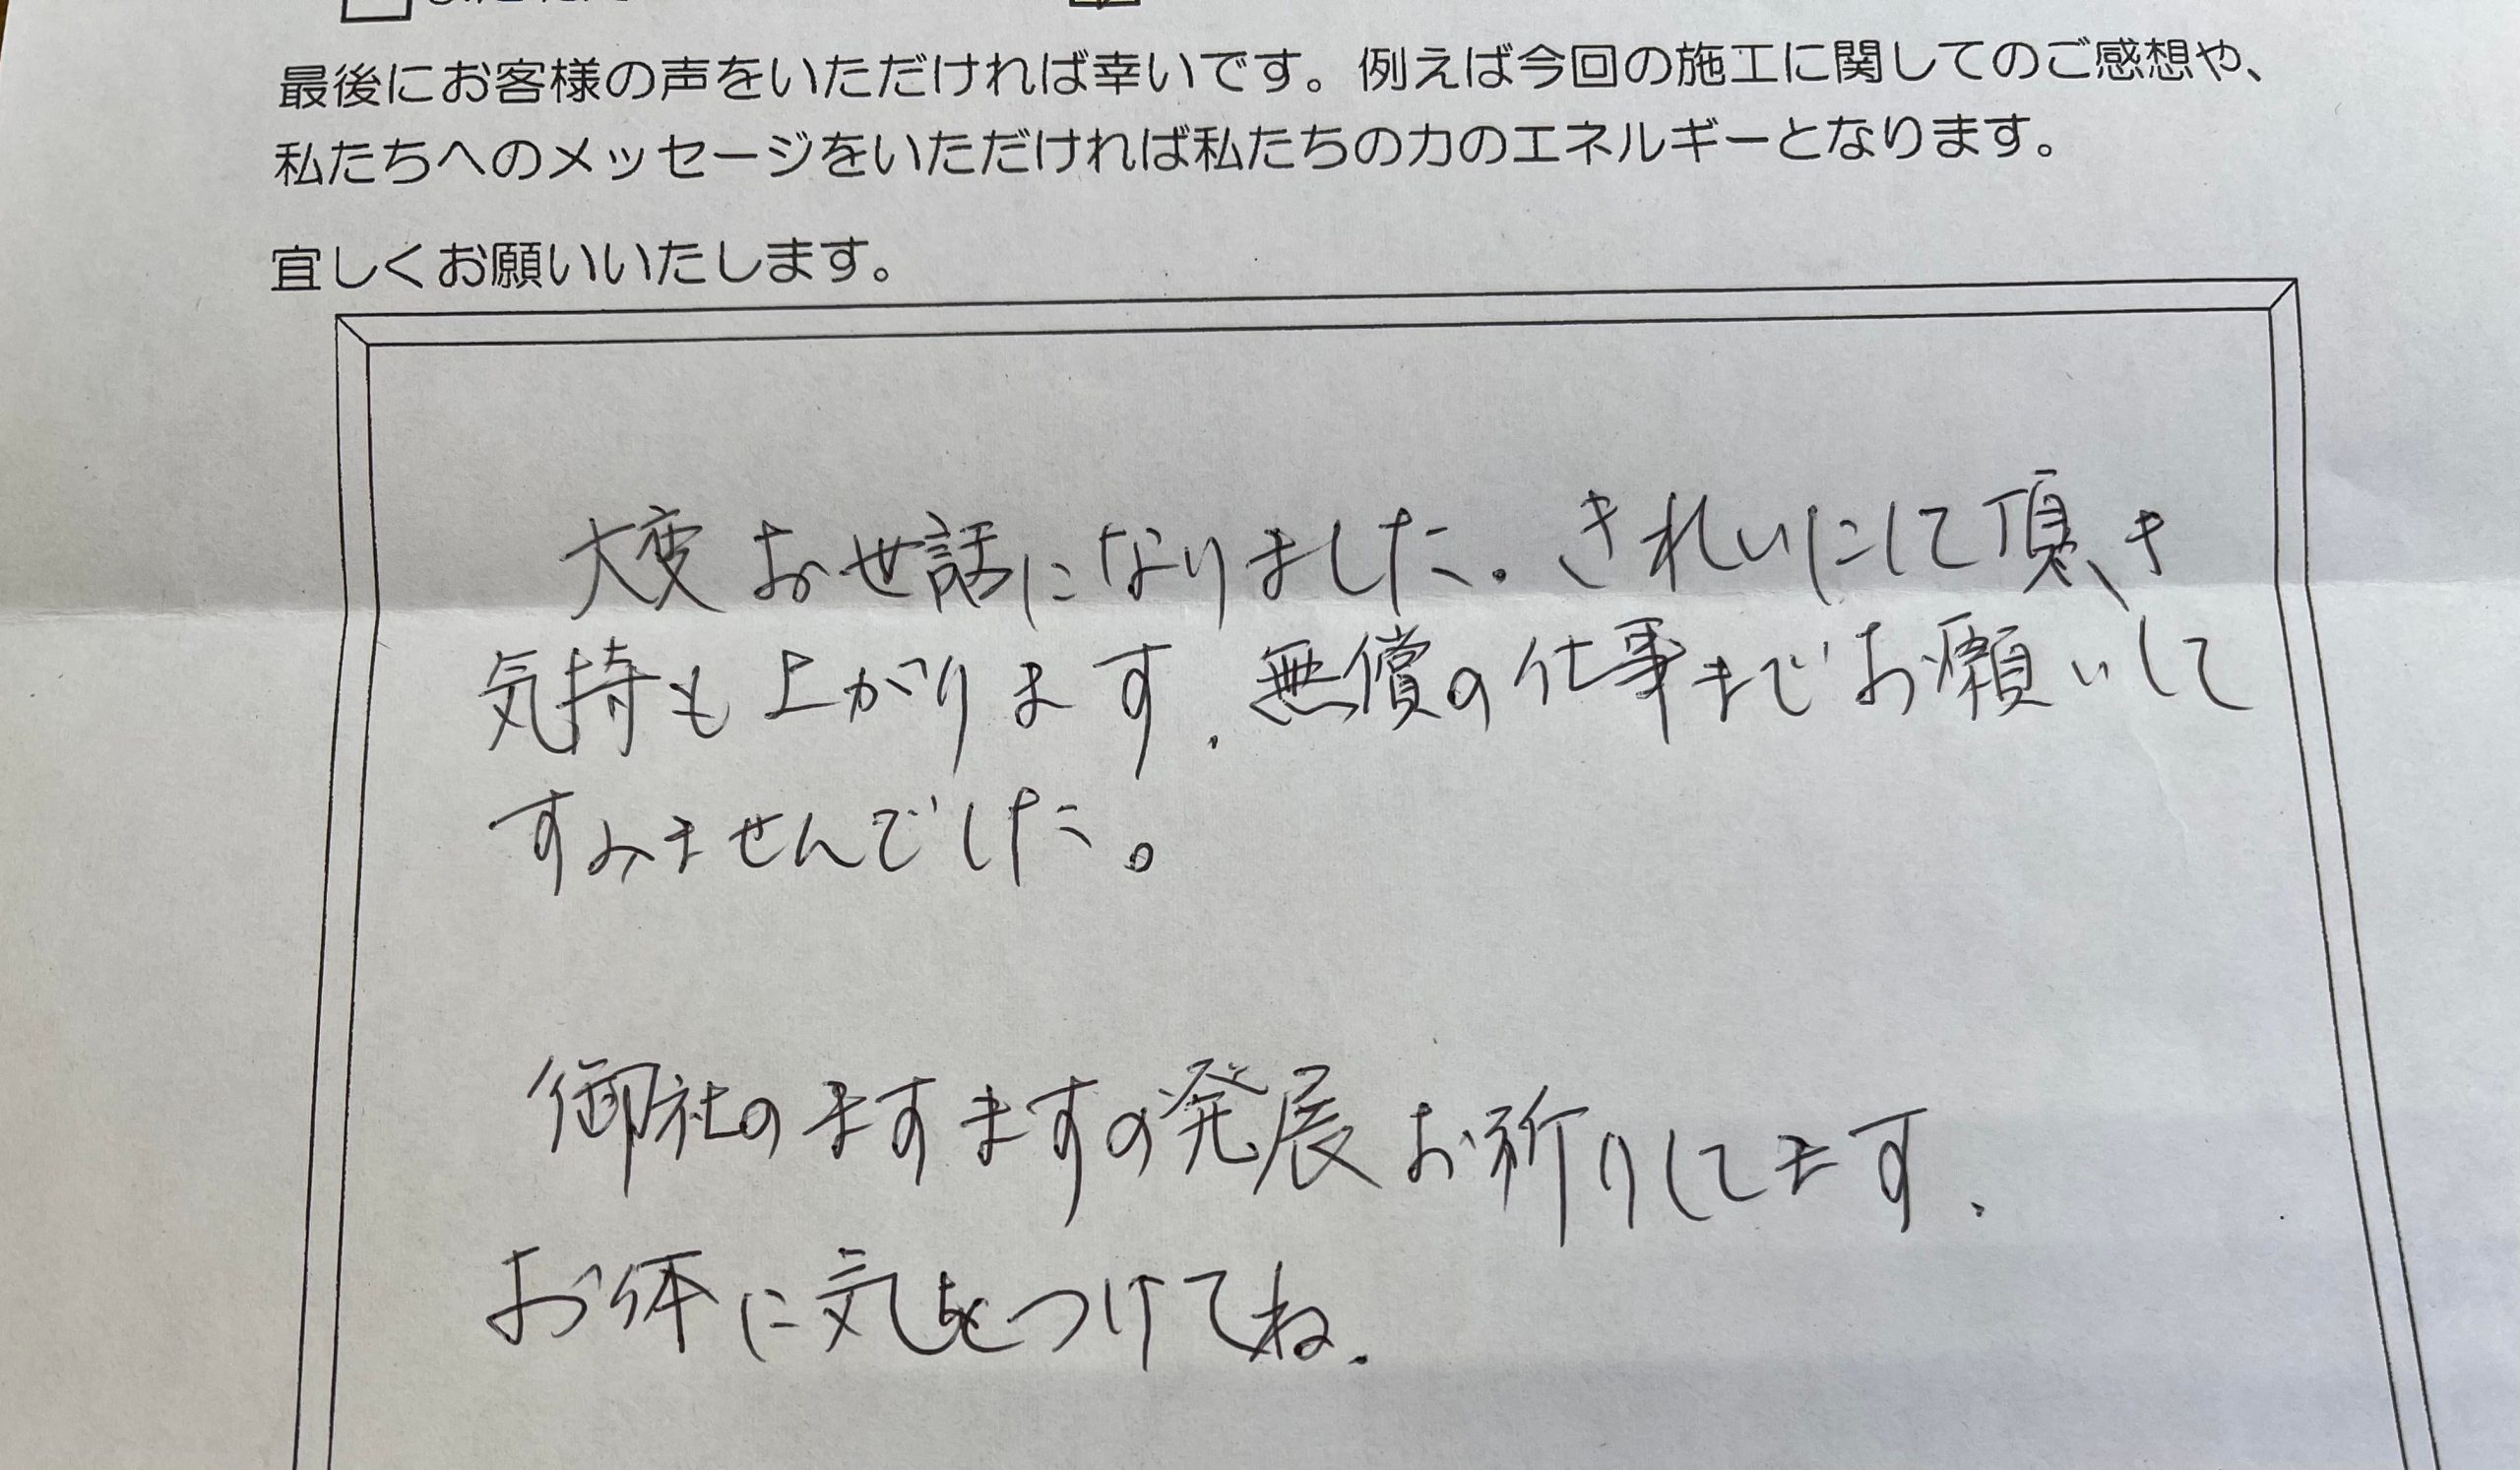 最後にお客様の声をいただければ幸いです。例えば今回の施工に関してのご感想や、
私たちへのメッセージをいただければ私たちの力のエネルギーとなります。
宜しくお願いいたします。
大変お世話になりました。きれいにして頂き
気持も上がります。無償の仕事までお願いして
すみませんでした。
御社のますますの発展お祈りしてます。
お体に気をつけてね。